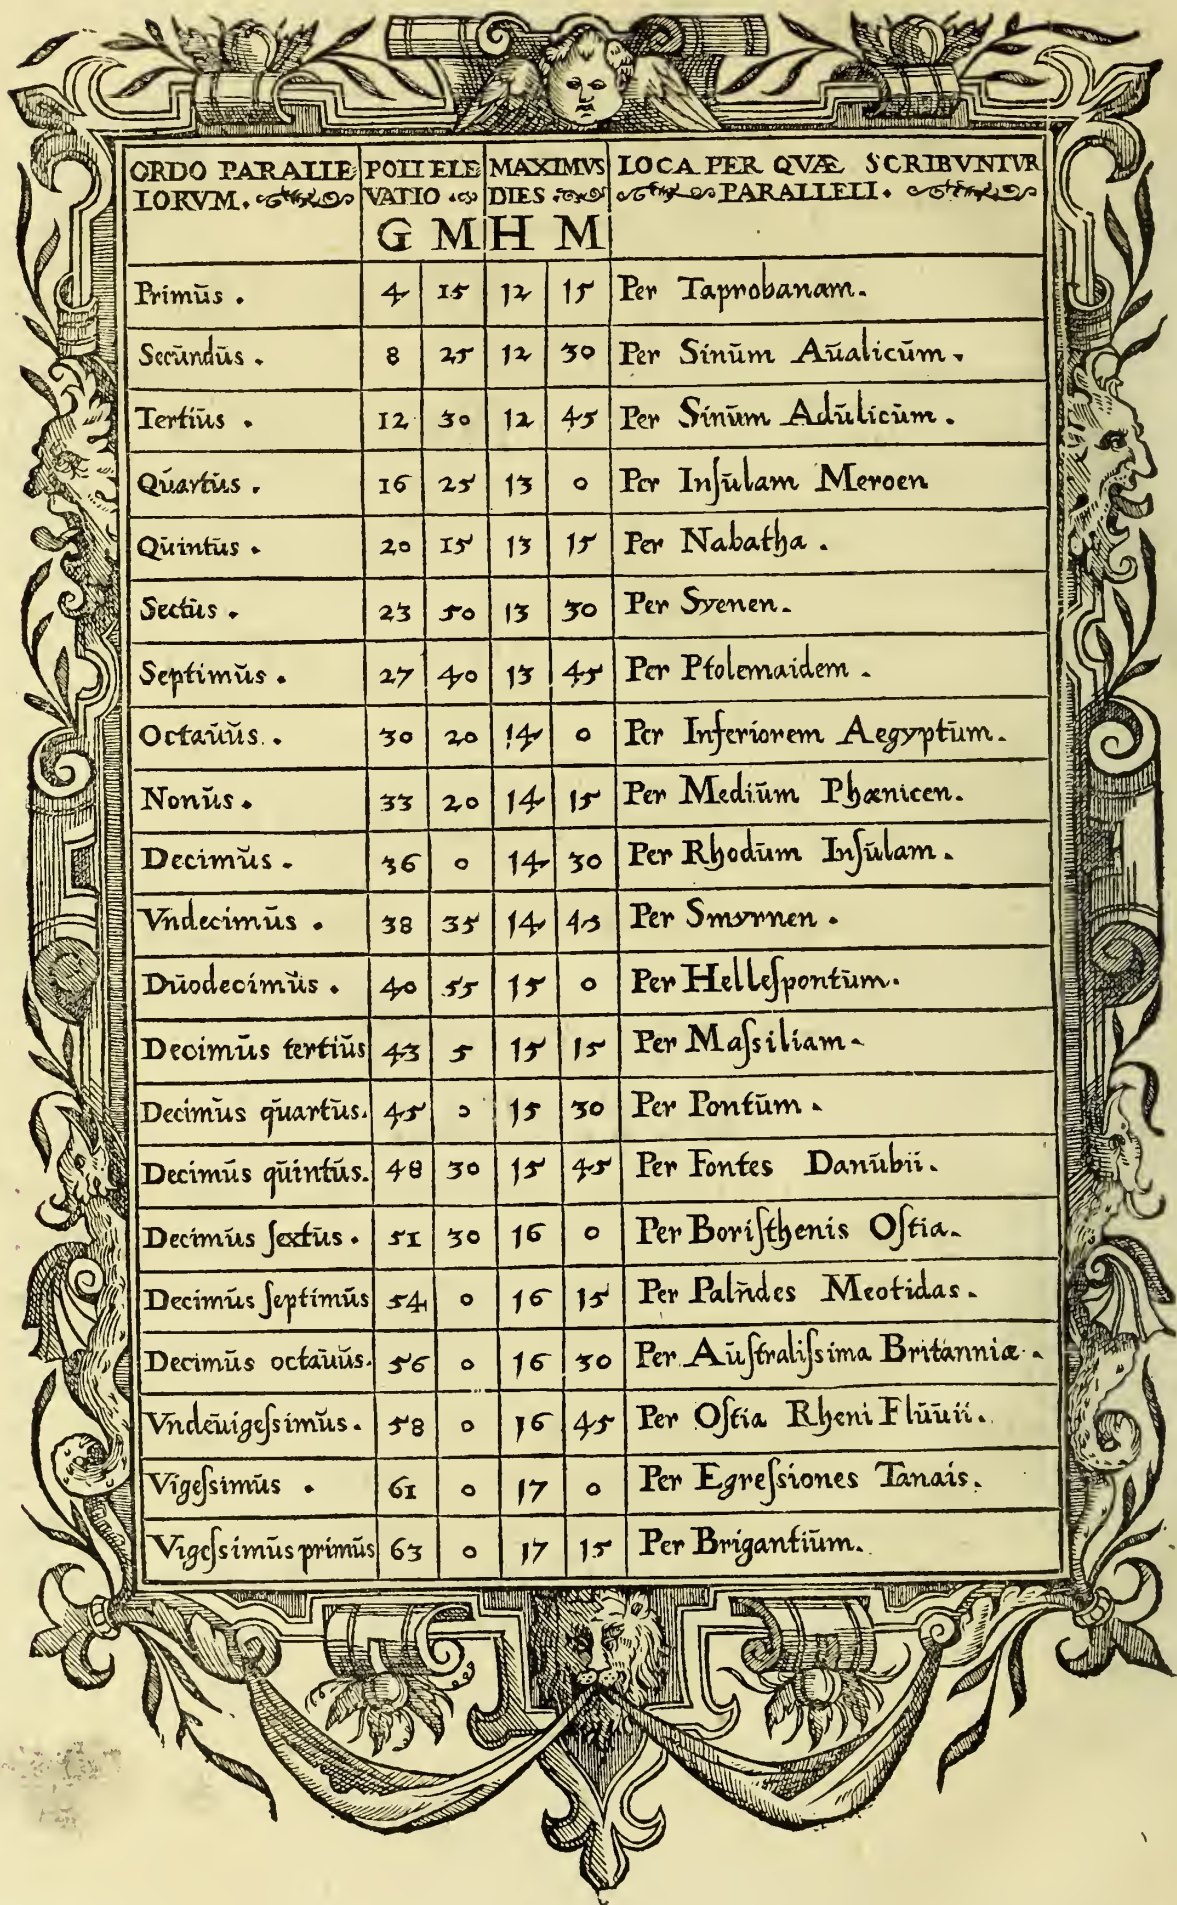 ORDO PARALLE POLI ELE MAXIMVS LOCA PER QVÆ SCRIBVNTVR
LORVM. VATIO DIES PARALLELI.
G M H M
Primūs. 4 15 12 15 Per Taprobanam.
Secūndūs. 8 25 12 30 Per Sinūm Aūalicūm.
Tertiūs. 12 30 12 45 Per Sinūm Adūlicūm.
Qūartūs. 16 25 13 0 Per Inſūlam Meroen
Qūintūs. 20 15 13 15 Per Nabatha.
Sectūs. 23 50 13 30 Per Syenen.
Septimūs. 27 40 13 45 Per Ptolemaidem.
Octaūūs. 30 20 14 0 Per Inferiorem Aegyptūm.
Nonūs. 33 20 14 15 Per Mediūm Phœnicen.
Decimūs. 36 0 14 30 Per Rhodūm Inſūlam.
Vndecimūs. 38 35 14 45 Per Smyrnen.
Dūodecimūs. 40 55 15 0 Per Helleſpontūm.
Decimūs tertiūs 43 5 15 15 Per Maſsiliam.
Decimūs qūartūs. 45 0 15 30 Per Pontūm.
Decimūs qūintūs. 48 30 15 45 Per Fontes Danūbii.
Decimūs ſextūs. 51 30 16 0 Per Boriſthenis Oſtia.
Decimūs ſeptimūs 54 0 16 15 Per Palūdes Meotidas.
Decimūs octaūūs. 56 0 16 30 Per Aūſtraliſsima Britanniæ.
Vndeūigeſsimūs. 58 0 16 45 Per Oſtia Rheni Flūūii.
Vigeſsimūs. 61 0 17 0 Per Egreſsiones Tanais.
Vigeſsimūs primūs 63 0 17 15 Per Brigantiūm.